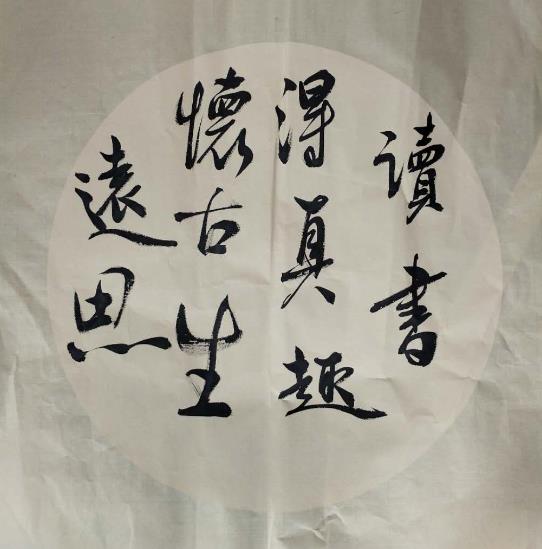 讀書
得真趣
懷古生
遠思